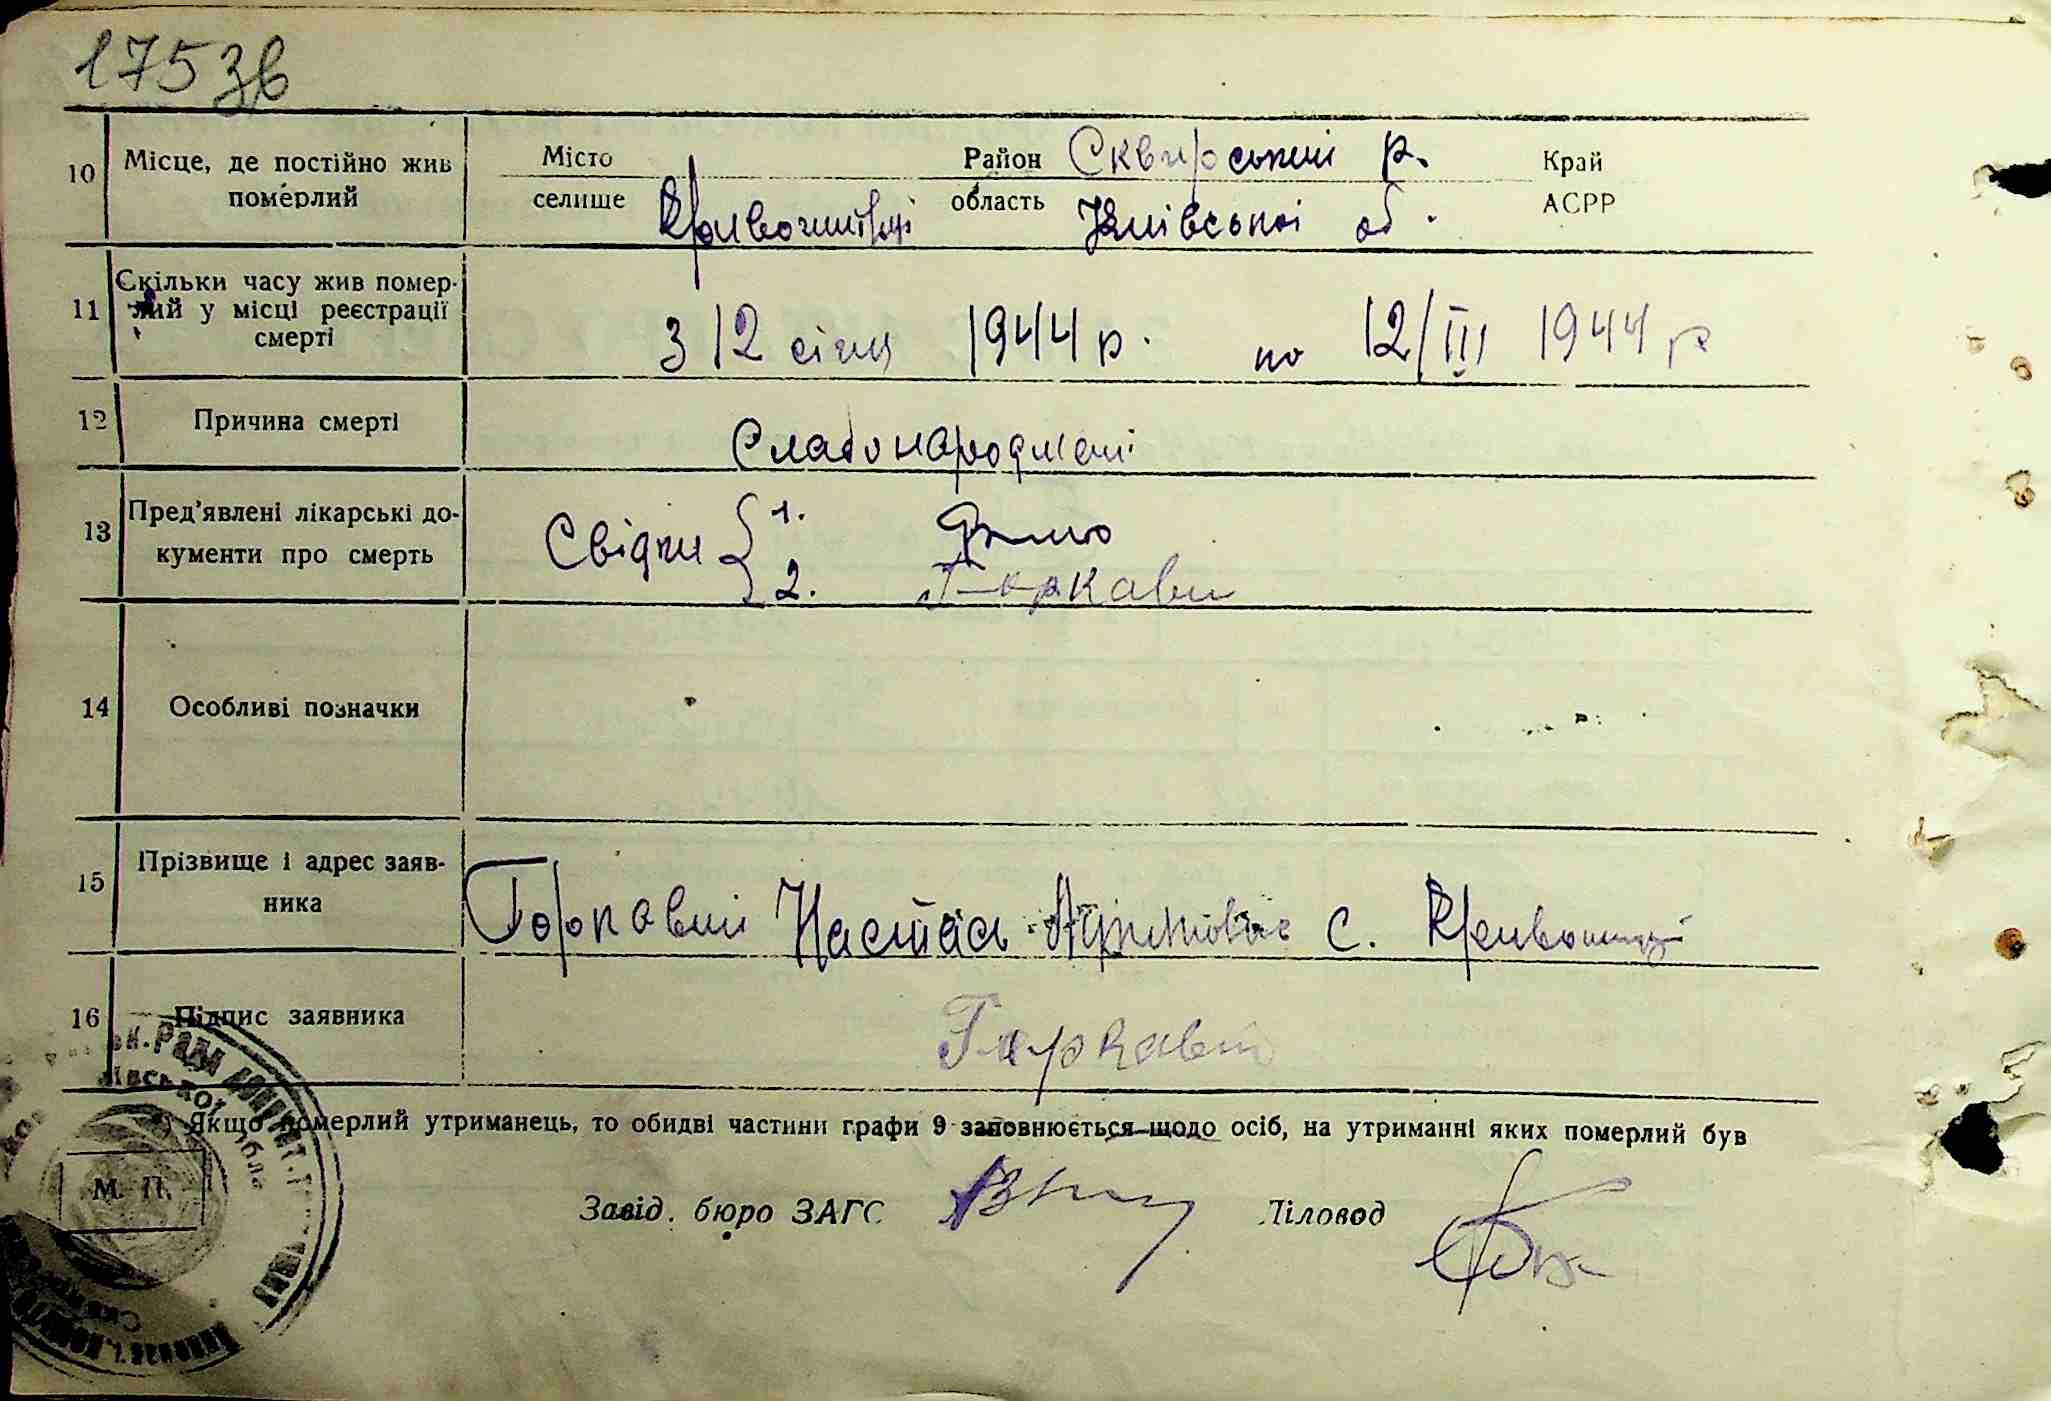 175 зв
10 Місце, де постійно жив померлий
Місто
селище
Район Сквирський р.
область Київської об.
Край
АСРР
11 Скільки часу жив померлий у місці реєстрації смерті
з 12 січня 1944 р. по 12/III 1944 р
12 Причина смерті
Слабонароджені
13 Пред'явлені лікарські документи про смерть
Свідки 1.
2. Горкавий
14 Особливі позначки
15 Прізвище і адрес заявника
Горкавий Настась с. Кривошиїнці
16 Підпис заявника
Горкавий
Якщо померлий утриманець, то обидві частини графи 9 заповнюється щодо осіб, на утриманні яких померлий був
М. П.
Завід. бюро ЗАГС
Діловод